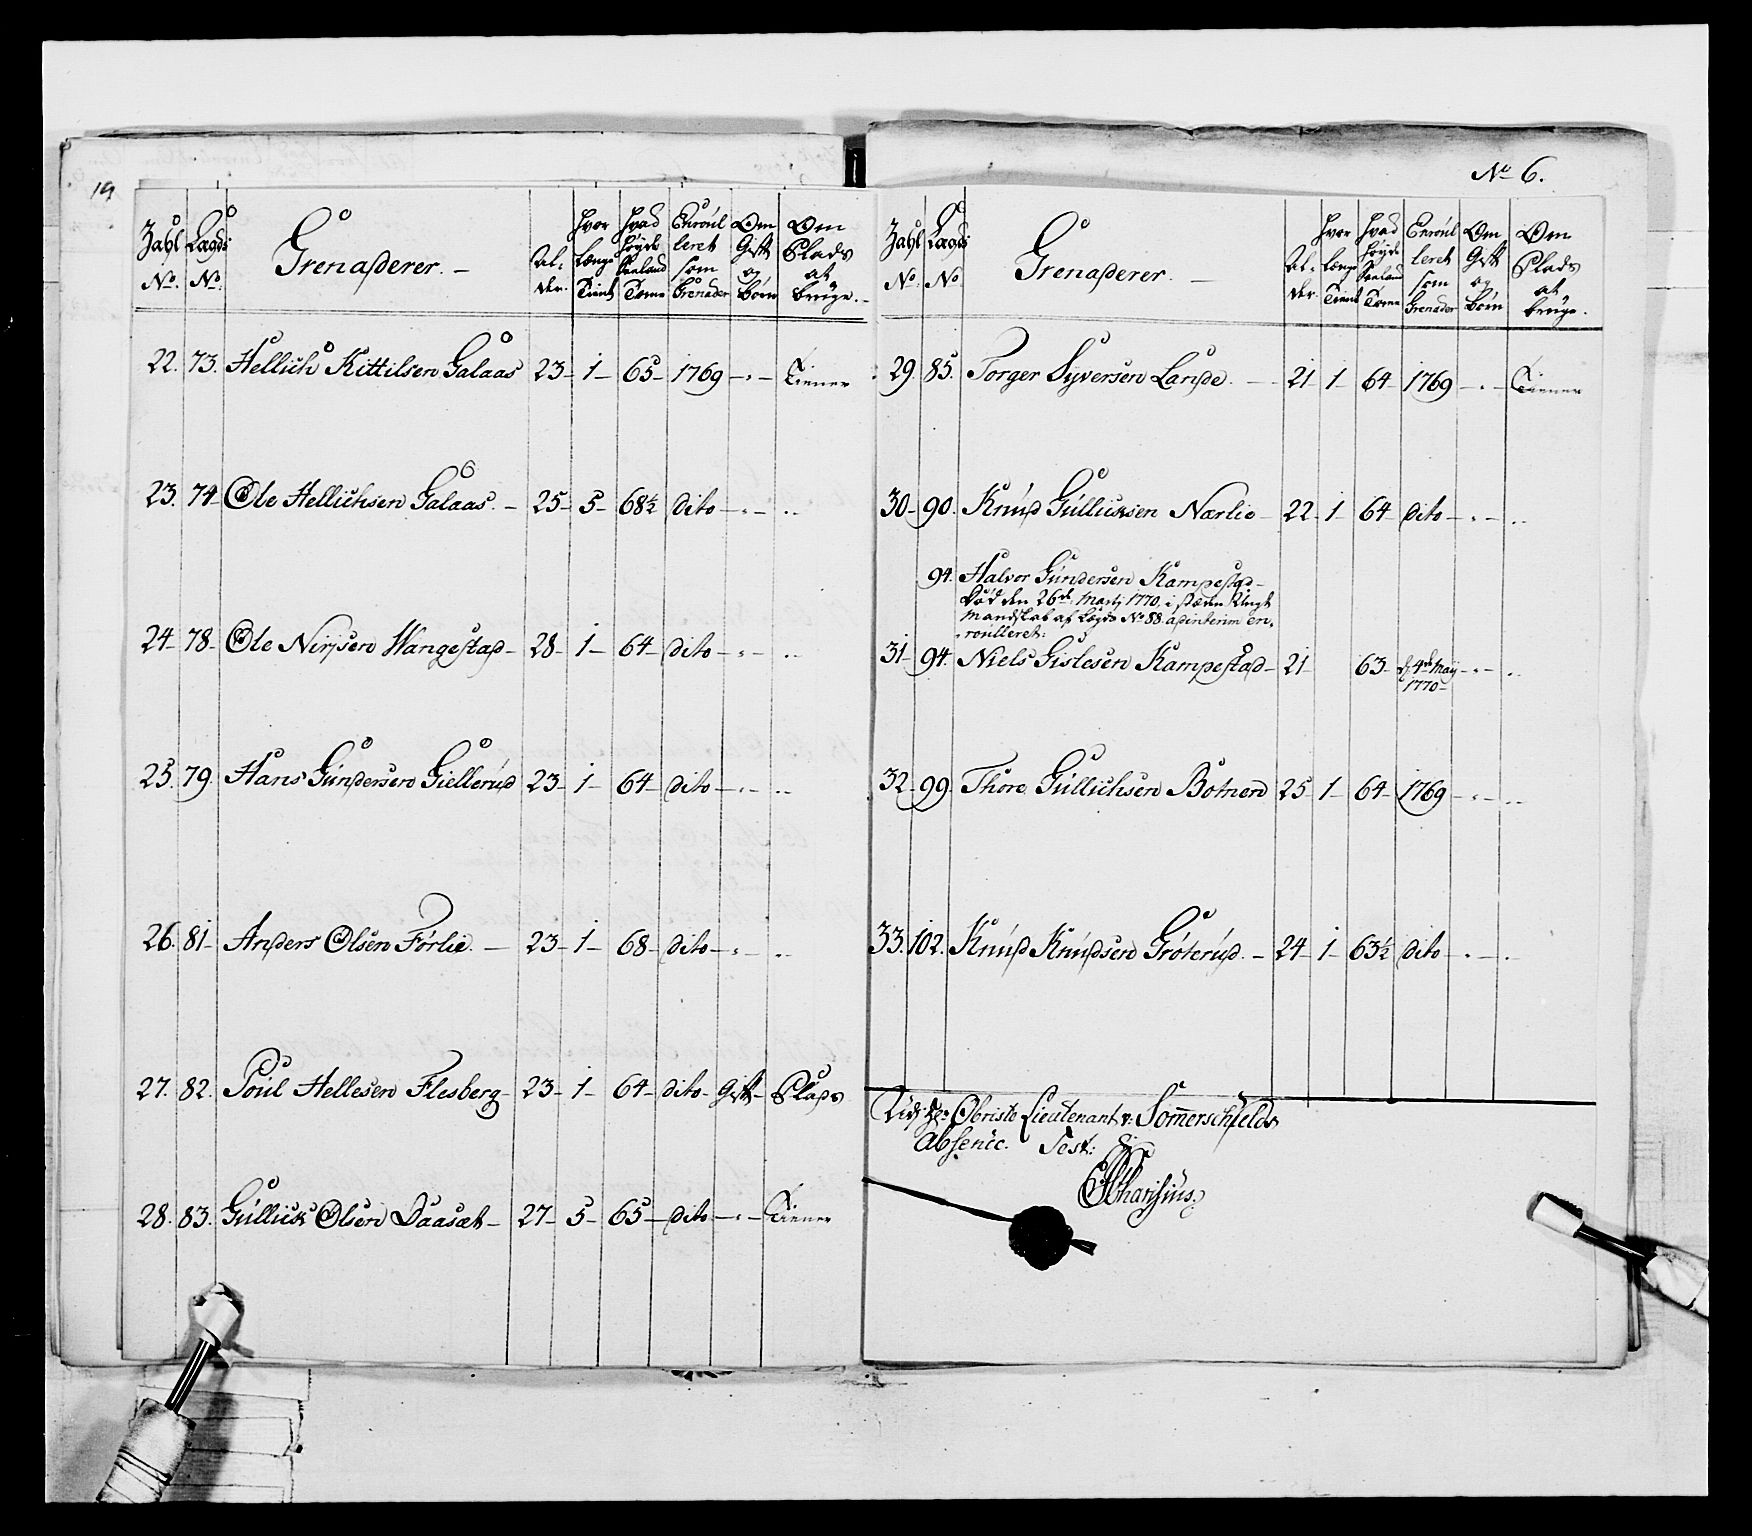 19
Zahl No. Lægds No. Grenaderer. — Al- der. Hvor Længe Tient Hvad Høyde Saaland Tome Enroul leret som Grenader Om Gift og børn Om Plads at bruge. -
22. 73. Hellich Kittilsen Galaas 23- 1- 65- 1769 - " - Tiener
23. 74- Ole Hellichsen Galaas. - 25- 5- 68½ dito - " - ..
24- 78- Ole Nirisen Wangestad- 28- 1- 64- dito - " - ..
25. 79. Hans Gundersen Giellerud 23- 1- 64- dito - " - ..
26. 81- Anders Olsen Förlie. - 23- 1- 68- dito - " - ..
27. 82. Poul Hellesen Flesberg- 23- 1- 64- dito- Gift- Plads
28. 83. Gullick Olsen Daasæt- 27- 5- 65- dito - " - Tiener
No 6.
Zahl No. Lægds No Grenaderer. — Al- der. Hvor længe Tient Hvad Høyde Saaland Tome Enroul leret som Grenader Om Gift og børn Om Plads at bruge.
29. 85. Torger Syversen Lande. - 21 1- 64- 1769 - " - Tiener
30- 90. Knud Gullicksen Narlie- 22- 1- 64- dito - " - ..
94. Halvor Gundersen Kampestad-
Död den 26de Martj 1770, i stæden Ungt
Mandskab af Lægds No 88 adinterim en-
roulleret:
31- 94. Niels Gislesen Kampestad- 21- 63- d. 4de Maij 1770- - " - ..
32- 99. Thore Gullichsen Botnen 25- 1- 64- 1769 - " - ..
33. 102. Knud Knudsen Gröterud. - 24- 1- 63½ dito - " - ..
Obriste Lieutenant v: Sommerschields
Absence. Test: